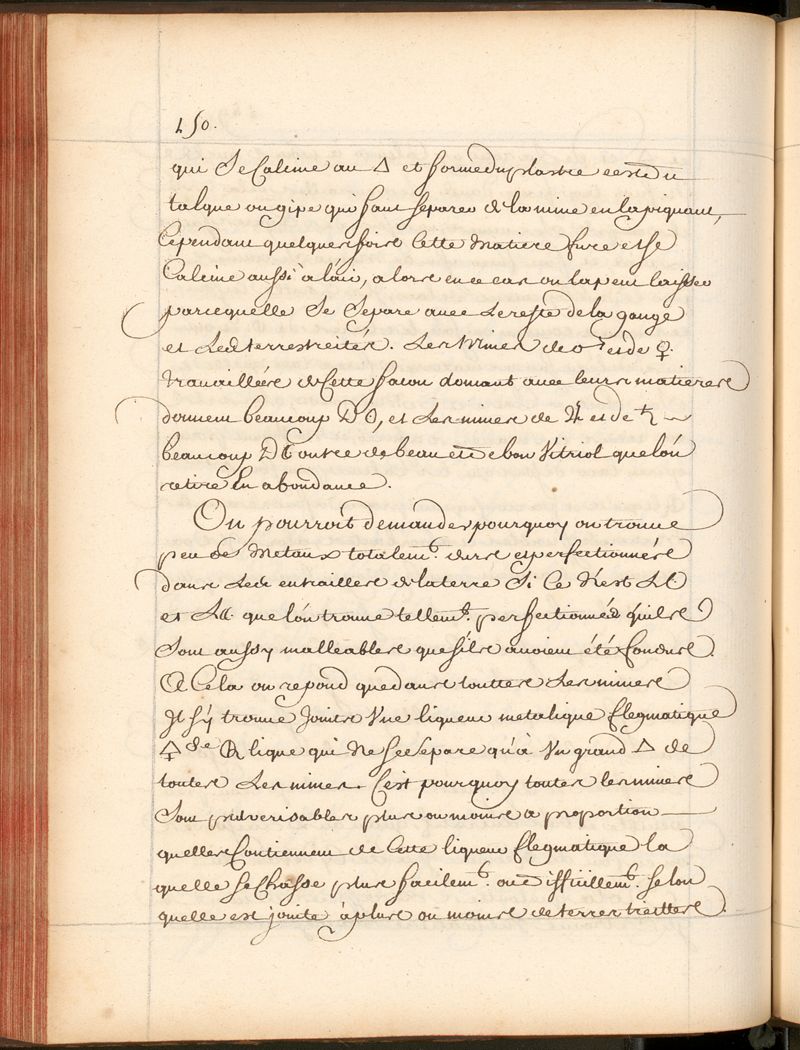 150.
qui se Calcine au 🜂 et forme du plastre cest du
talque ou gipe qui faut separer de la mine en la piquant,
Cependant quelquesfois Cette Matiere fuse et se
Calcine aussi à lair, alors en ce cas on la peut laisser
parcequelle se separe avec le reste de la gangue
et Les terrestreités. Les Mines de ♂ et de ♀.
travaillées de Cette facon donnant avec leurs matieres
donnent beaucoup D , et Les mines de ♃ et de ♄
beaucoup D outre de beau et de bon Vitriol que lón
retire En abondance.
On pourroit demander pourquoy on trouve
peu de Metaux totalemt. durs et perfectionnés
dans Les entrailles de la terre Si Ce N'est L
et L que lón trouve tellemt. perfectionnés quils
Sont aussy malleables que s'ils avoient été fondus.
A Cela on repond que dans touttes Les mines
Il s'y trouve Jointe Vne liqueur metalique flegmatique
🜍 de lique qui Ne se Separe qu'à Vn grand 🜂 de
toutes Les mines. C'est pourquoy toutes les mines
Sont pulverisables plus ou moins a proportion
quelles Contiennent de Cette liqueur flegmatique la
quelle se Chasse plus facilemt. ou difficillemt. selon
quelle est jointe à plus ou moins de terrestreittes.